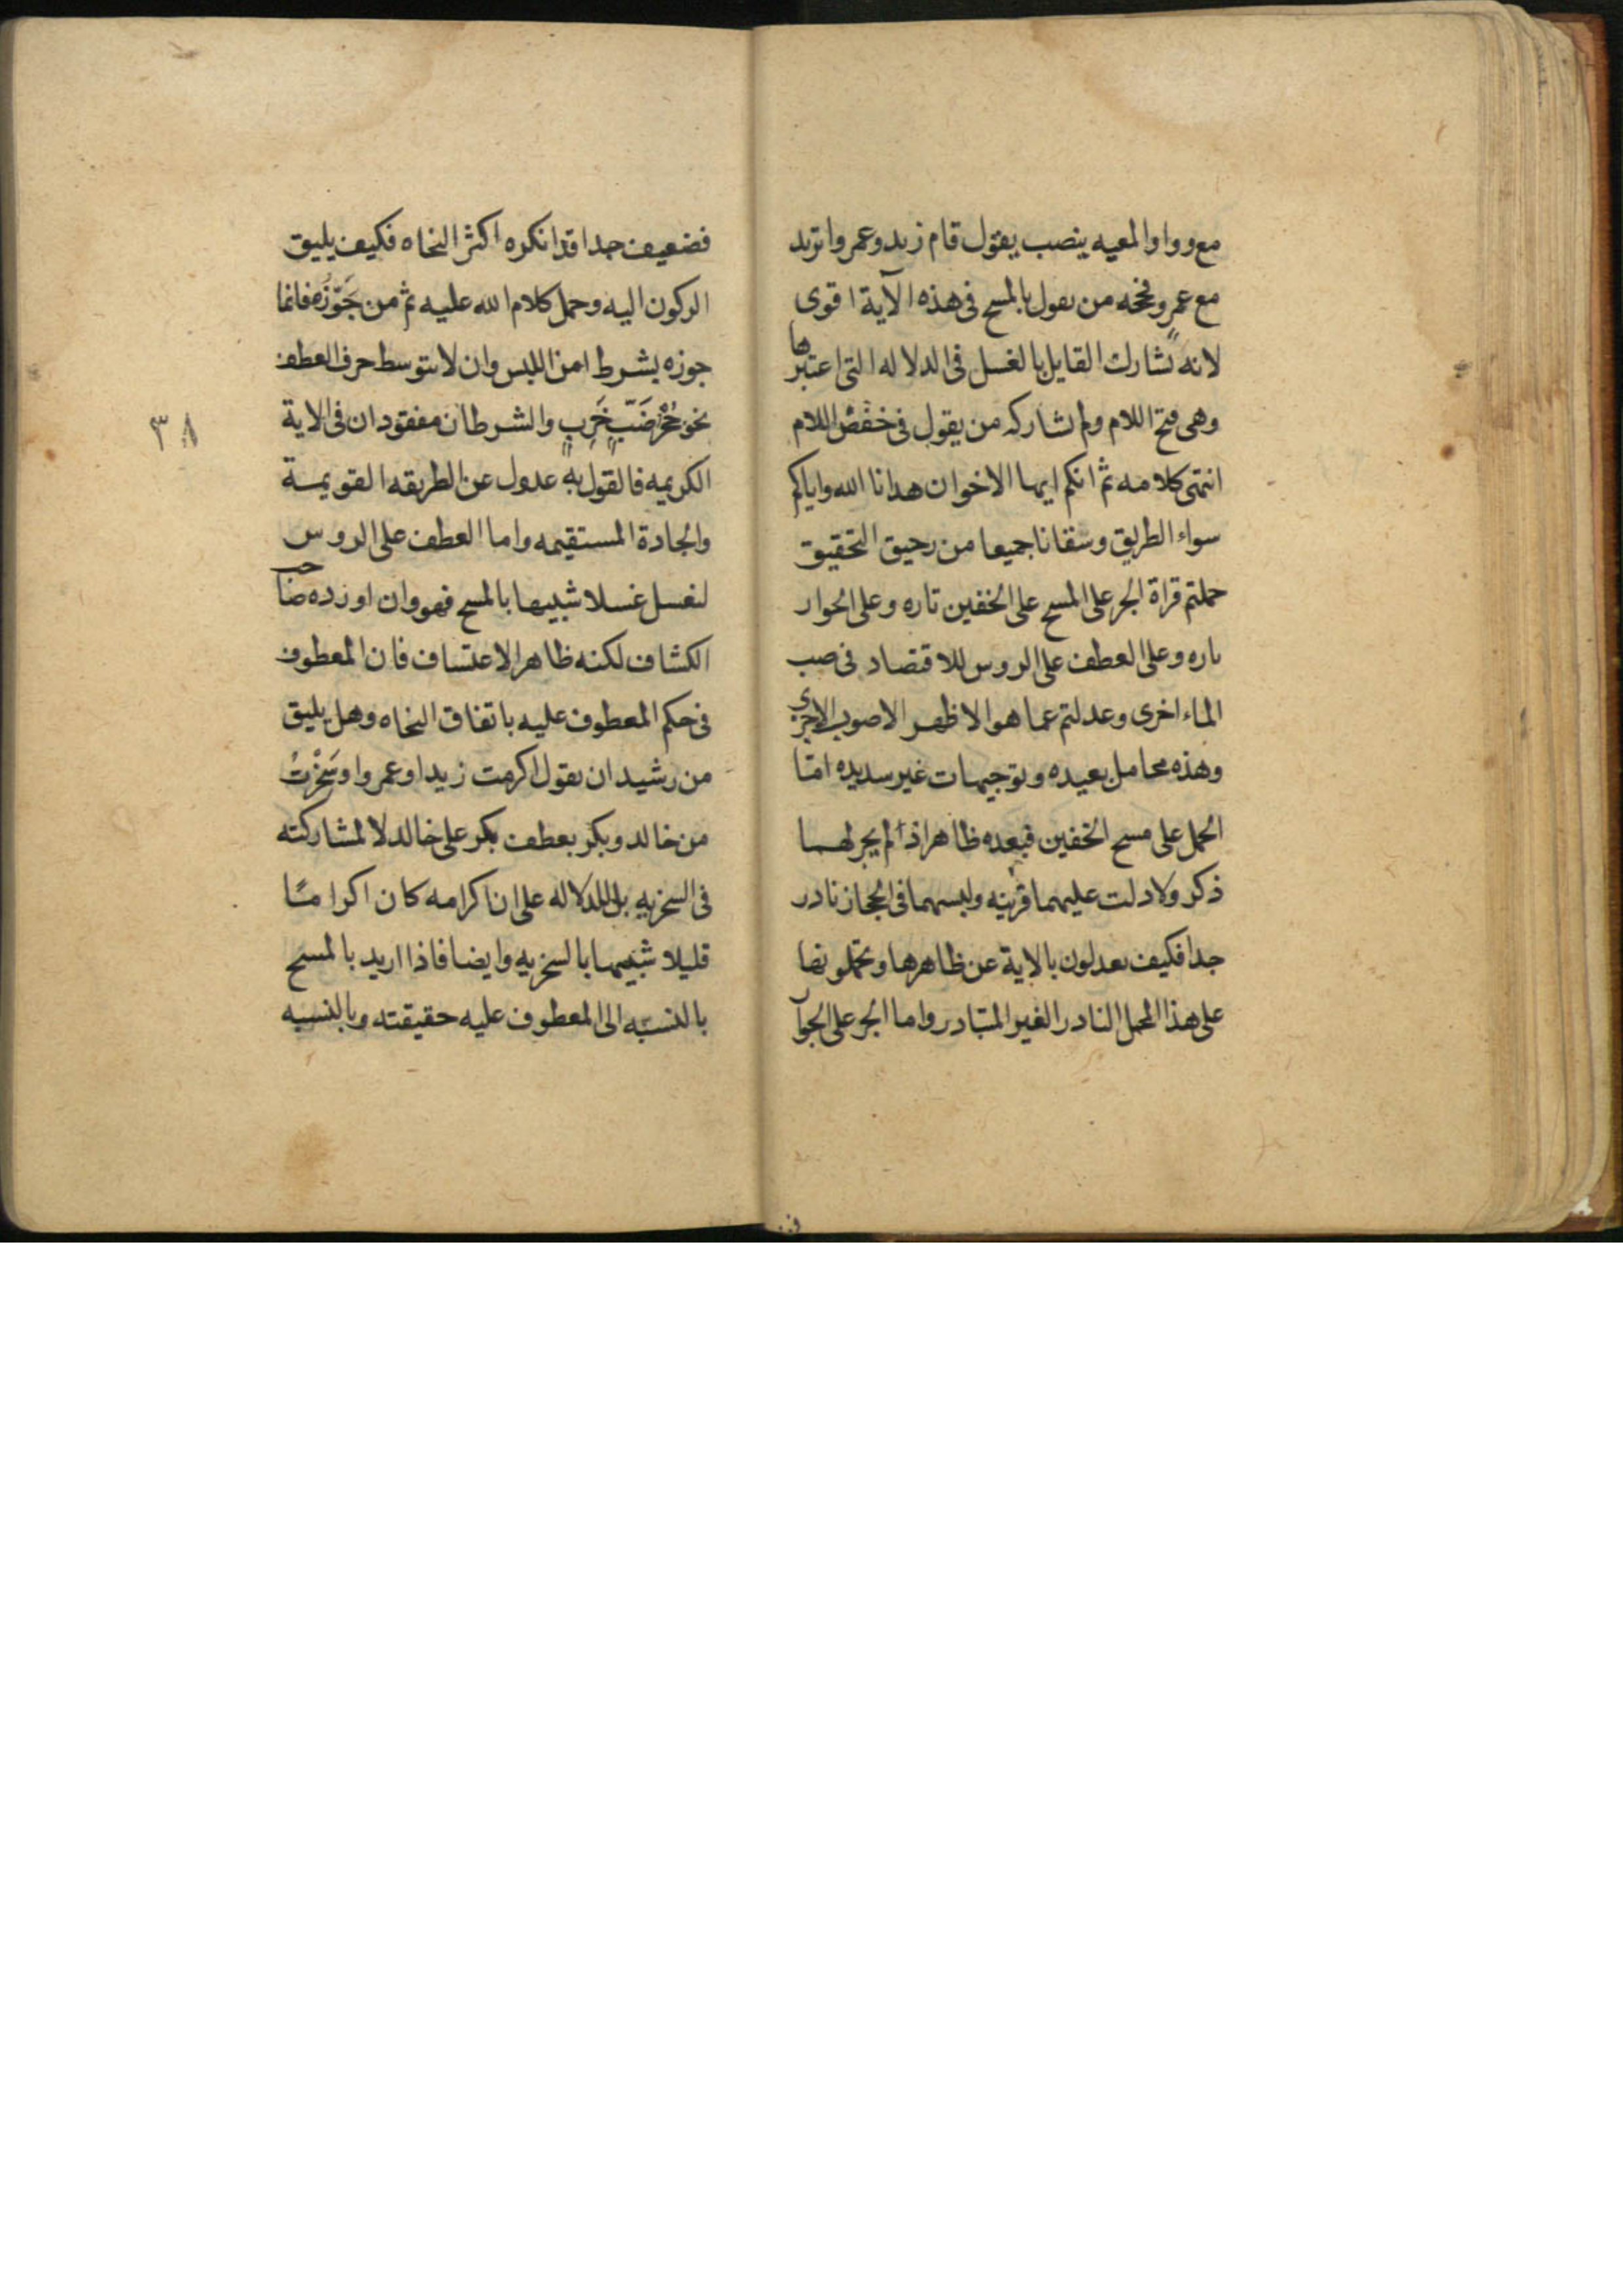 مع وواو المعيه ينصب يقول قام زيد وعمروا تريد
مع عمرو فحجه من يقول بالمسح فى هذه الآية اقوى
لانه يشارك القايل بالغسل فى الدلاله التى اعتبرها
وهى فتح اللام ولم يشاركه من يقول فى خفض اللام
انتهى كلامه ثم انكم ايها الاخوان هدانا الله واياكم
سواء الطريق وسقانا جميعا من رحيق التحقيق
حملتم قراة الجر على المسح على الخفين تاره وعلى الجوار
تاره وعلى العطف على الروس للاقتصاد فى صب
الماء اخرى وعدلتم عما هو الاظهر الاصوب الاحرى
وهذه محامل بعيده وتوجيهات غير سديده امّا
الحمل على مسح الخفين فبعده ظاهر اذ لم يجر لهما
ذكر ولا دلت عليهما قرينه ولبسهما فى الحجاز نادر
جدا فكيف تعدلون بالاية عن ظاهرها وتحملونها
على هذا المحمل النادر الغير المتبادر واما الجر على الجوا
فضعيف جدا قد انكره اكثر النحاه فكيف يليق
الركون اليه وحمل كلام الله عليه ثم من جَوّزَه فانما
جوزه بشرط امن اللبس وان لا يتوسط حرف العطف
نحو جُحْرُ ضَبّ خَرِبٍ والشرطان مفقودان فى الاية
الكريمه فالقول به عدول عن الطريقه القويمة
والجادة المستقيمه واما العطف على الروس
لنغسل غسلا شبيها بالمسح فهو وان اورده صاحب
الكشاف لكنه ظاهر الاعتساف فان المعطوف
فى حكم المعطوف عليه باتفاق النحاه وهل يليق
من رشيد ان يقول اكرمت زيدا وعمروا وسَخِرْتُ
من خالد وبكر بعطف بكر على خالد لا لمشاركته
فى السخريه بل للدلاله على ان اكرامه كان اكرامًا
قليلا شبيها بالسخريه وايضا فاذا اريد بالمسح
بالنسبه الى المعطوف عليه حقيقته وبالنسبه
٣٨